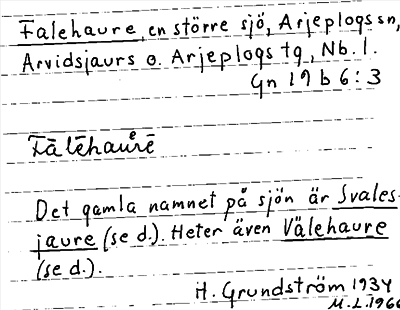 Falehaure, en större sjö, Arjeplogs sn,
Arvidsjaurs o. Arjeplogs tg, Nb. l.
Gn 19 b 6:3
Det gamla namnet på sjön är Svales-
jaure (se d.). Heter även Välehaure
(se d.).
H. Grundström 1934
M.L. 1966